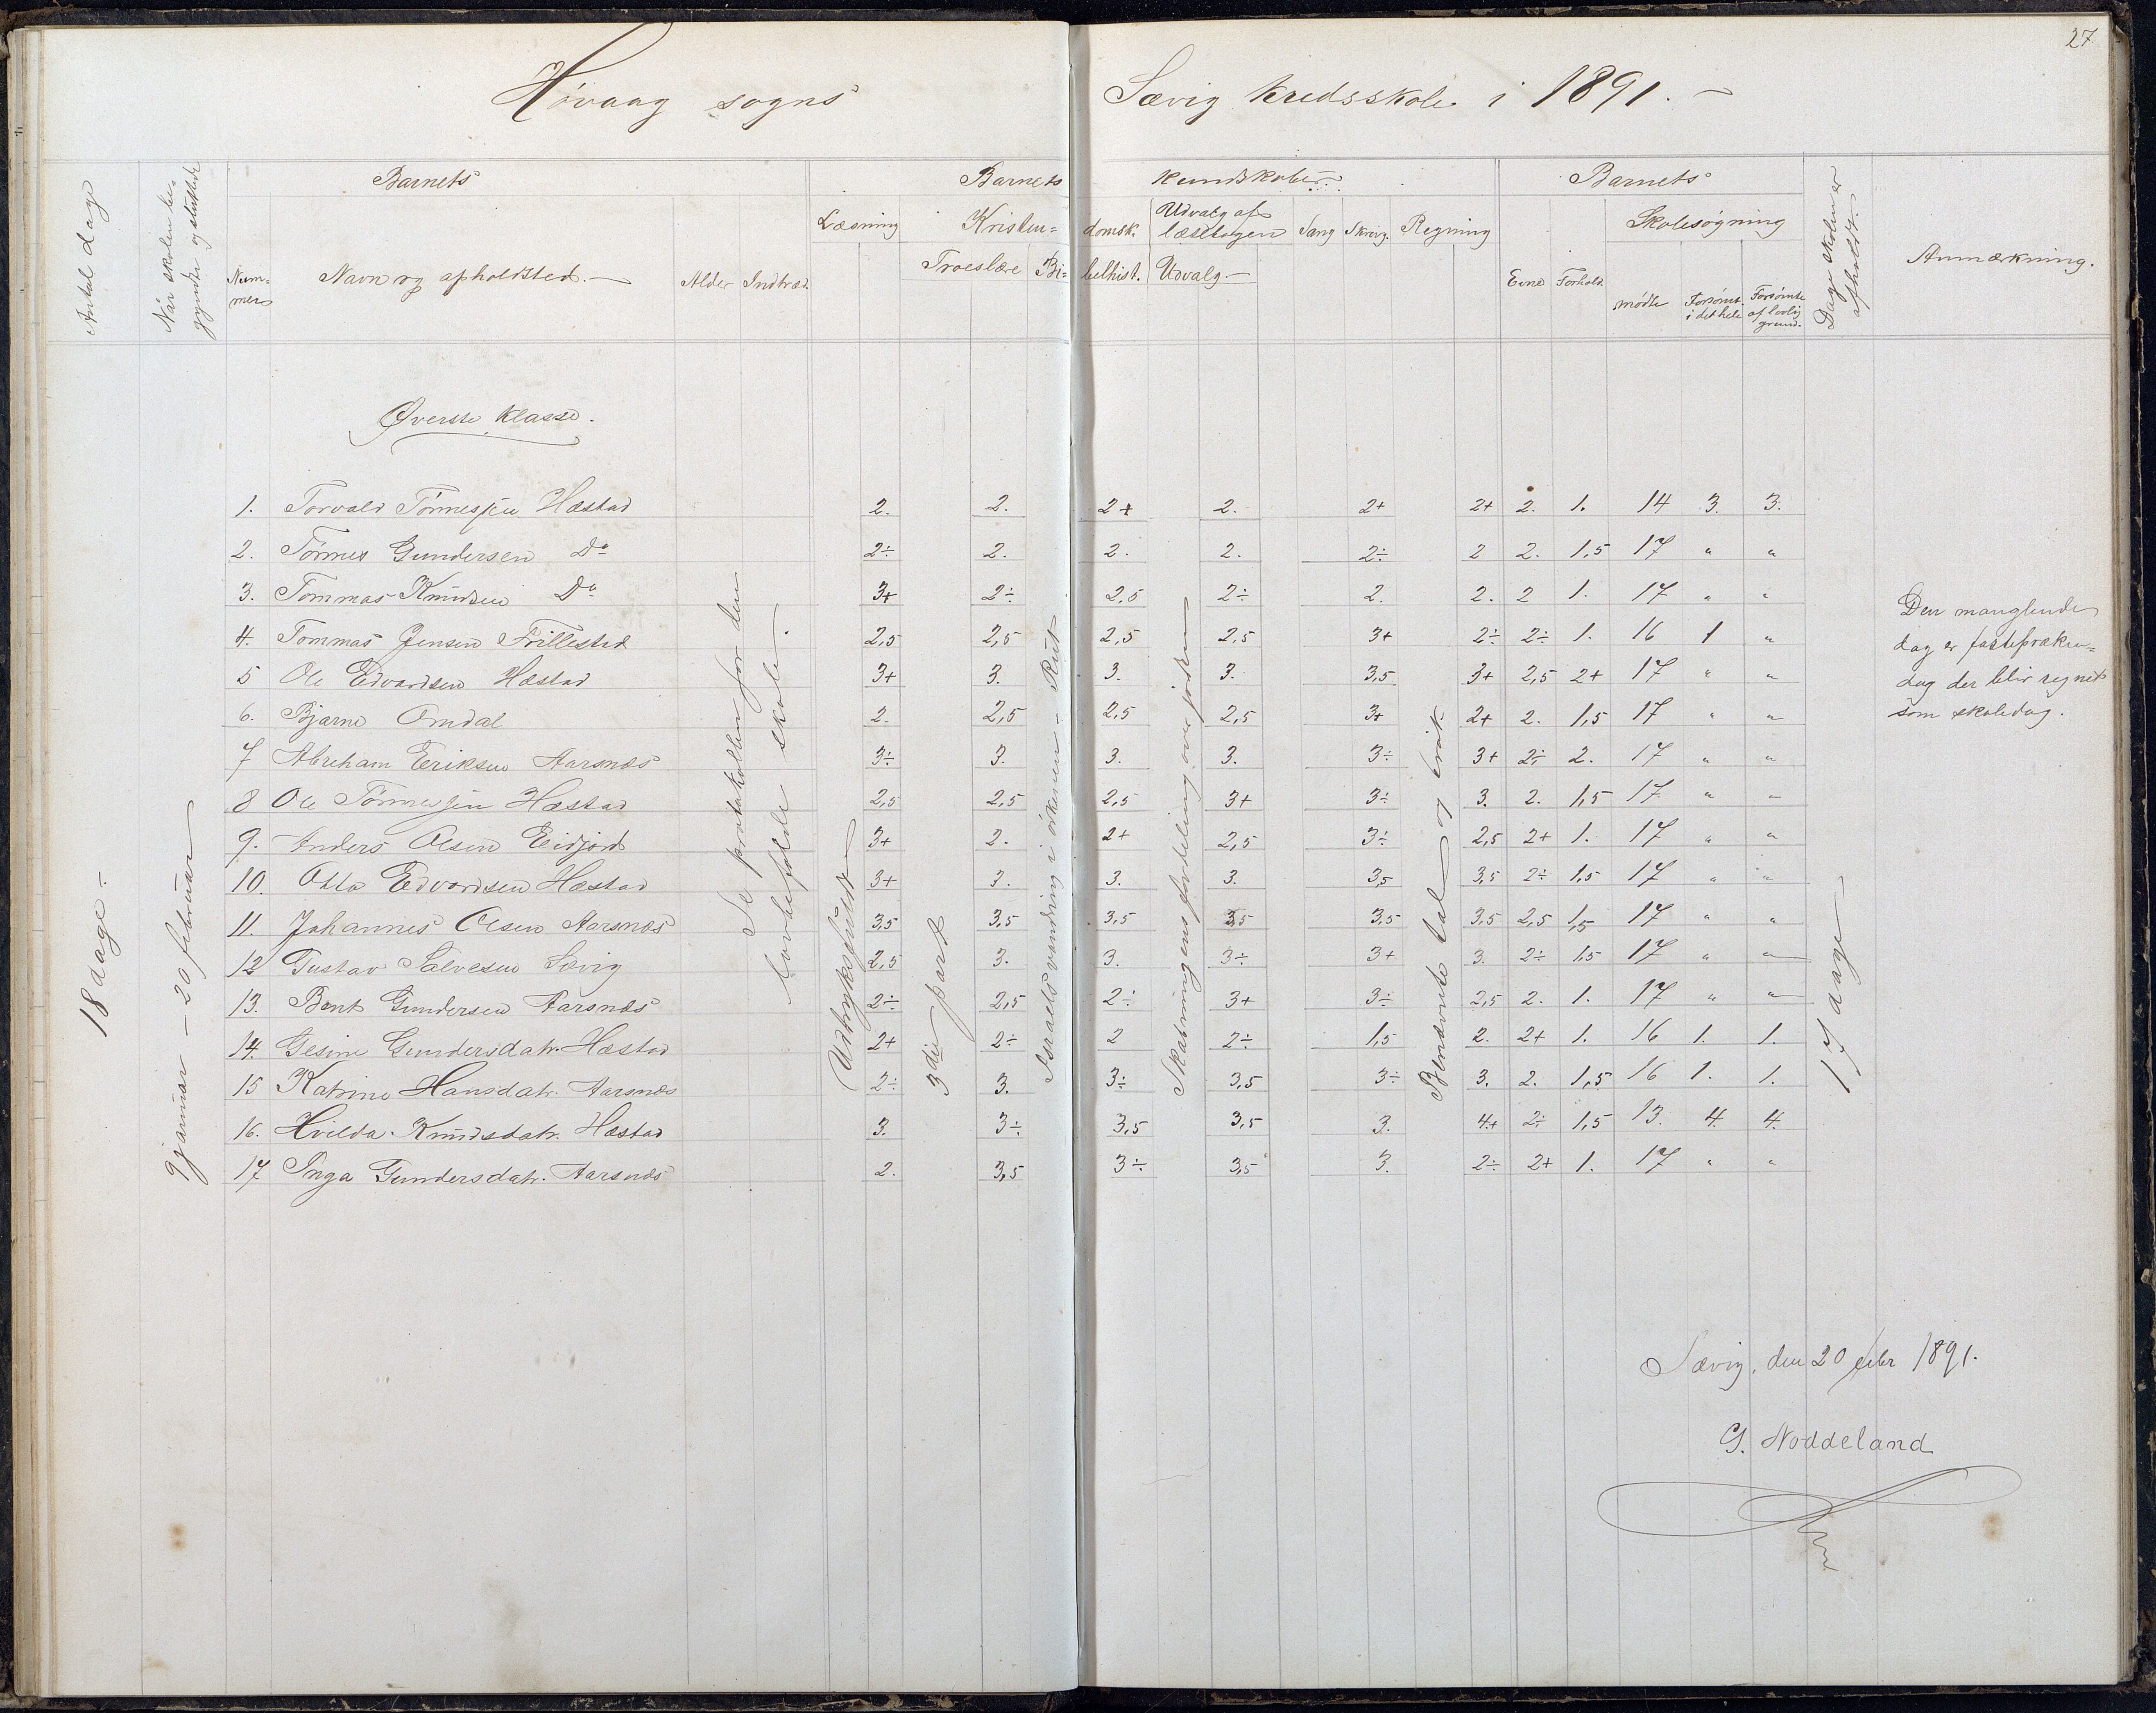 27
Høvaag sogns Sævig kredsskole i 1891. -
Antal dage
Når skolen be-
gyndte og sluttede
Barnets
Num-
mer
Navn og opholdsted. -
Alder Indtræd.
Barnets kundskaber
Læsning
Kristen- domsk.
Troeslære Bi- belhist.
Udvalg af
læsebogen
Udvalg. -
Sang Skrivg. Regning
Barnets
Evne Forhold.
Skolesøgning
mødte
Forsømt.
i det hele
Forsømte
af lovlig
grund.
Dage skolen er
afholdt.
Anmærkning.
Øverste klasse.
1. Torvald Tønnessen Hæstad 2. 2. 2+ 2. 2+ 2+ 2. 1. 14 3. 3.
2. Tønnes Gundersen Do 2÷ 2. 2. 2. 2÷ 2 2. 1,5 17 " "
3. Tommas Knudsen Do 3+ 2÷ 2,5 2÷ 2. 2. 2 1. 17 " "
4. Tommas Jensen Trillested 2,5 2,5 2,5 2,5 3+ 2÷ 2÷ 1. 16 1 "
5 Ole Edvardsen Hæstad 3+ 3. 3. 3. 3,5 3+ 2,5 2+ 17 " "
6. Bjarne Omdal 2. 2,5 2,5 2,5 3+ 2+ 2. 1,5 17 " "
7 Abreham Eriksen Aarsnæs 3÷ 3. 3. 3. 3÷ 3+ 2÷ 2. 17 " "
8 Ole Tønnessen Hæstad 2,5 2,5 2,5 3+ 3÷ 3. 2. 1,5 17 " "
9. Anders Olsen Eidjord 3+ 2. 2+ 2,5 3÷ 2,5 2+ 1. 17 " "
10. Otto Edvardsen Hæstad 3+ 3. 3. 3. 3,5 3,5 2÷ 1,5 17 " "
11. Johannes Olsen Aarsnæs 3,5 3,5 3,5 3,5 3,5 3,5 2,5 1,5 17 " "
12 Gustav Salvesen Sævig 2,5 3. 3. 3÷ 3+ 3. 2÷ 1,5 17 " "
13. Bent Gundersen Aarsnæs 2÷ 2,5 2÷ 3+ 3÷ 2,5 2. 1. 17 " "
14. Gesine Gundersdatr. Hæstad 2+ 2÷ 2 2÷ 1,5 2. 2+ 1. 16 1. 1.
15 Katrine Hansdatr. Aarsnæs 2÷ 3. 3÷ 3,5 3÷ 3. 2. 1,5 16 1. 1.
16. Hvilda Knudsdatr. Hæstad 3. 3÷ 3,5 3,5 3. 4+ 2÷ 1,5 13. 4. 4.
17 Inga Gundersdatr. Aarsnæs 2. 3,5 3÷ 3,5 3. 2÷ 2+ 1. 17 " "
18 dage -
9 januar - 20 februar
Se protokollen for den
lovbefalede skole.
Udtryksfuldt
3die part
Israels vandring i ørkenen - Rut
Skabningens fordeling over jorden
Benævnte tal og brøk
17 dage
Den manglende
dag er fastepræken-
dag der blir regnet
som skoledag.
Sævig, den 20 febr 1891.
G. Noddeland